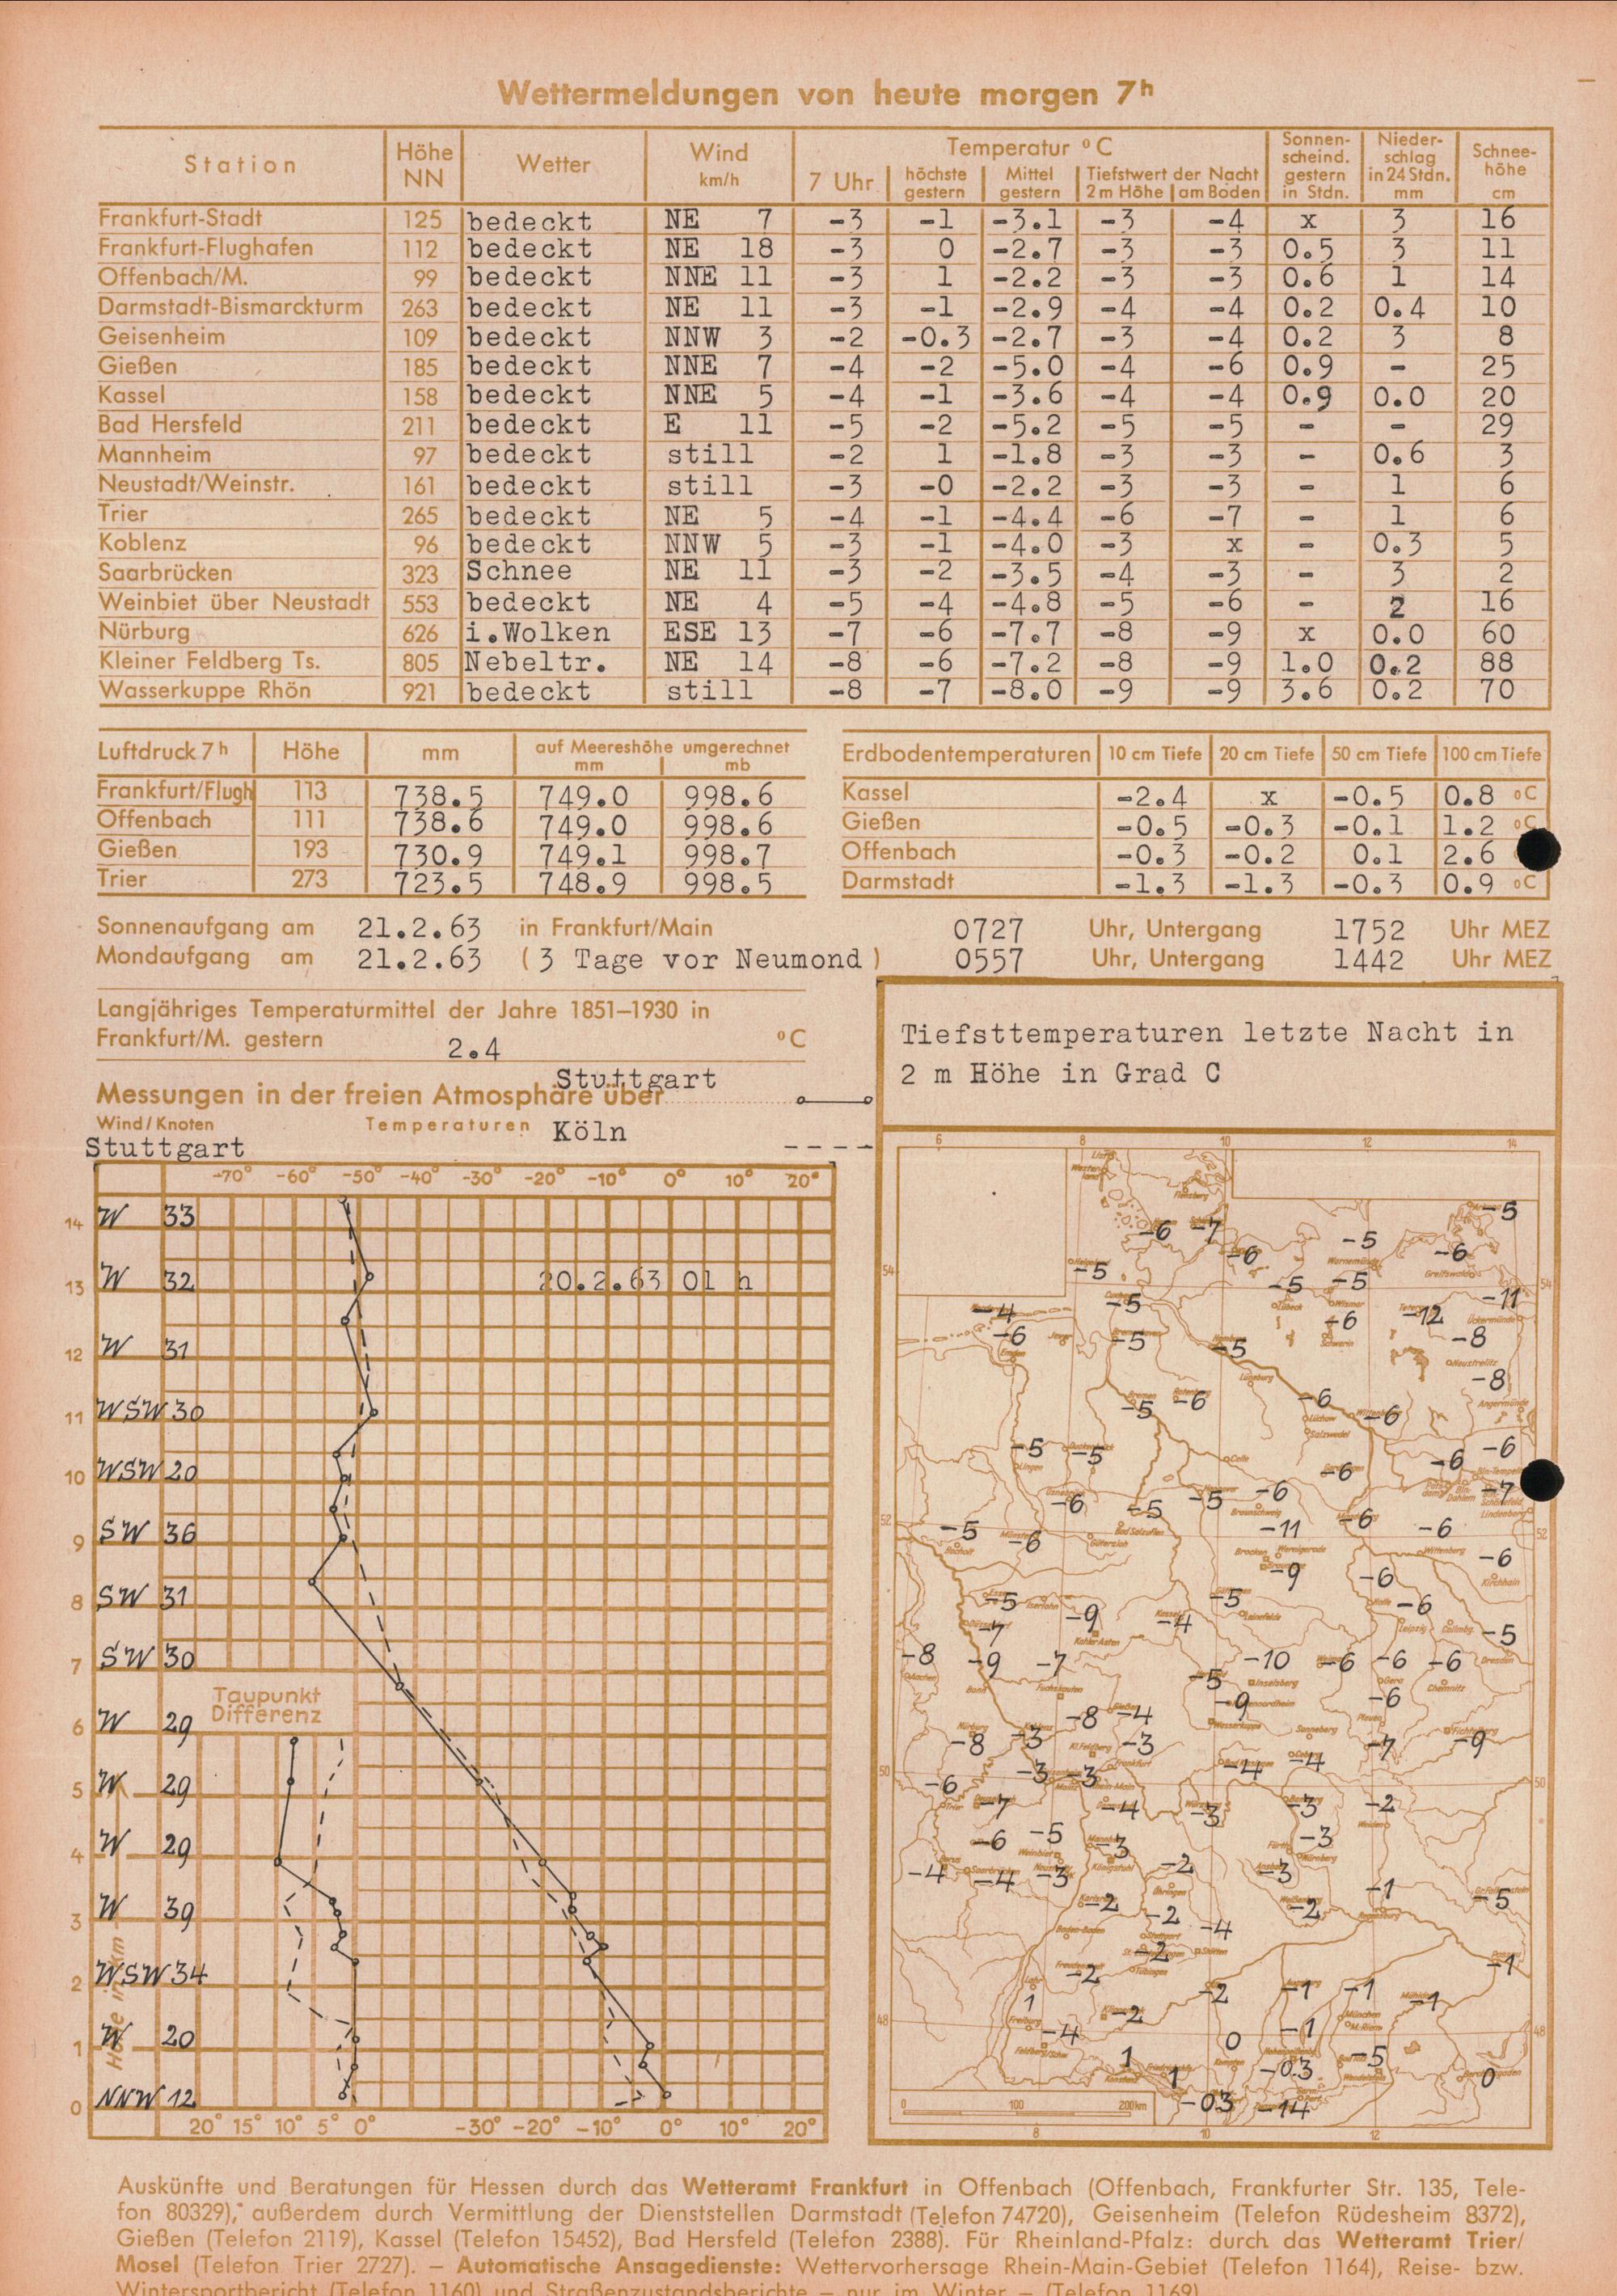 Wettermeldungen von heute morgen 7h
Station Höhe NN Wetter Wind km/h Temperatur °C 7 Uhr höchste gestern Mittel gestern Tiefstwert der Nacht 2 m Höhe am Boden Sonnen-scheind. gestern in Stdn. Nieder-schlag in 24 Stdn. mm Schnee-höhe cm
Frankfurt-Stadt 125 bedeckt NE 7 -3 -1 -3.1 -3 -4 x 3 16
Frankfurt-Flughafen 112 bedeckt NE 18 -3 0 -2.7 -3 -3 0.5 3 11
Offenbach/M. 99 bedeckt NNE 11 -3 1 -2.2 -3 -3 0.6 1 14
Darmstadt-Bismarckturm 263 bedeckt NE 11 -3 -1 -2.9 -4 -4 0.2 0.4 10
Geisenheim 109 bedeckt NNW 3 -2 -0.3 -2.7 -3 -4 0.2 3 8
Gießen 185 bedeckt NNE 7 -4 -2 -5.0 -4 -6 0.9 - 25
Kassel 158 bedeckt NNE 5 -4 -1 -3.6 -4 -4 0.9 0.0 20
Bad Hersfeld 211 bedeckt E 11 -5 -2 -5.2 -5 -5 - - 29
Mannheim 97 bedeckt still -2 1 -1.8 -3 -3 - 0.6 3
Neustadt/Weinstr. 161 bedeckt still -3 -0 -2.2 -3 -3 - 1 6
Trier 265 bedeckt NE 5 -4 -1 -4.4 -6 -7 - 1 6
Koblenz 96 bedeckt NNW 5 -3 -1 -4.0 -3 x - 0.3 5
Saarbrücken 323 Schnee NE 11 -3 -2 -3.5 -4 -3 - 3 2
Weinbiet über Neustadt 553 bedeckt NE 4 -5 -4 -4.8 -5 -6 - 2 16
Nürburg 626 i.Wolken ESE 13 -7 -6 -7.7 -8 -9 x 0.0 60
Kleiner Feldberg Ts. 805 Nebeltr. NE 14 -8 -6 -7.2 -8 -9 1.0 0.2 88
Wasserkuppe Rhön 921 bedeckt still -8 -7 -8.0 -9 -9 3.6 0.2 70
Luftdruck 7h Höhe mm auf Meereshöhe umgerechnet mm mb
Frankfurt/Flugh 113 738.5 749.0 998.6
Offenbach 111 738.6 749.0 998.6
Gießen 193 730.9 749.1 998.7
Trier 273 723.5 748.9 998.5
Erdbodentemperaturen 10 cm Tiefe 20 cm Tiefe 50 cm Tiefe 100 cm Tiefe
Kassel -2.4 x -0.5 0.8 °C
Gießen -0.5 -0.3 -0.1 1.2 °C
Offenbach -0.3 -0.2 0.1 2.6
Darmstadt -1.3 -1.3 -0.3 0.9 °C
Sonnenaufgang am 21.2.63 in Frankfurt/Main 0727 Uhr, Untergang 1752 Uhr MEZ
Mondaufgang am 21.2.63 (3 Tage vor Neumond) 0557 Uhr, Untergang 1442 Uhr MEZ
Langjähriges Temperaturmittel der Jahre 1851–1930 in
Frankfurt/M. gestern 2.4 °C
Messungen in der freien Atmosphäre über Stuttgart
Wind/Knoten Temperaturen Köln
Stuttgart
-70° -60° -50° -40° -30° -20° -10° 0° 10° 20°
14 W 33
13 W 32 20.2.63 01 h
12 W 31
11 WSW 30
10 WSW 20
9 SW 36
8 SW 31
7 SW 30
Taupunkt
Differenz
6 W 29
5 W 29
4 W 29
3 W 39
2 WSW 34
1 W 20
0 NNW 12
Höhe in km
20° 15° 10° 5° 0° -30° -20° -10° 0° 10° 20°
Tiefsttemperaturen letzte Nacht in
2 m Höhe in Grad C
6 8 10 12 14
-5
-6 -7 -6 -5 -6
54 -5 -5 -5 54
-4 -5 -6 -12 -11
-6 -5 -5 -8
-8
-5 -6 -6 -6
-5 -5 -6 -6 -6
-6 -5 -5 -6 -7
52 -5 -6 -11 -6 -6 52
-9 -6 -6
-5 -9 -4 -5 -6
-7 -5
-8 -9 -7 -5 -10 -6 -6 -6
-9 -6
-8 -4
-8 -3 -3 -7 -9
50 -3 -3 -4 -4 50
-6 -7 -4 -3 -3 -2
-6 -5 -3 -3
-4 -4 -3 -2 -3 -1 -5
-2 -2 -4 -2
-2 -2 -1
1 -2 -2 -1 -1 -1
48 -4 0 -1 48
1 1 -03 -5 0
-03 -14
0 100 200km
8 10 12
Auskünfte und Beratungen für Hessen durch das Wetteramt Frankfurt in Offenbach (Offenbach, Frankfurter Str. 135, Tele-
fon 80329), außerdem durch Vermittlung der Dienststellen Darmstadt (Telefon 74720), Geisenheim (Telefon Rüdesheim 8372),
Gießen (Telefon 2119), Kassel (Telefon 15452), Bad Hersfeld (Telefon 2388). Für Rheinland-Pfalz: durch das Wetteramt Trier/
Mosel (Telefon Trier 2727). – Automatische Ansagedienste: Wettervorhersage Rhein-Main-Gebiet (Telefon 1164), Reise- bzw.
Wintersportbericht (Telefon 1160) und Straßenzustandsberichte – nur im Winter – (Telefon 1169)